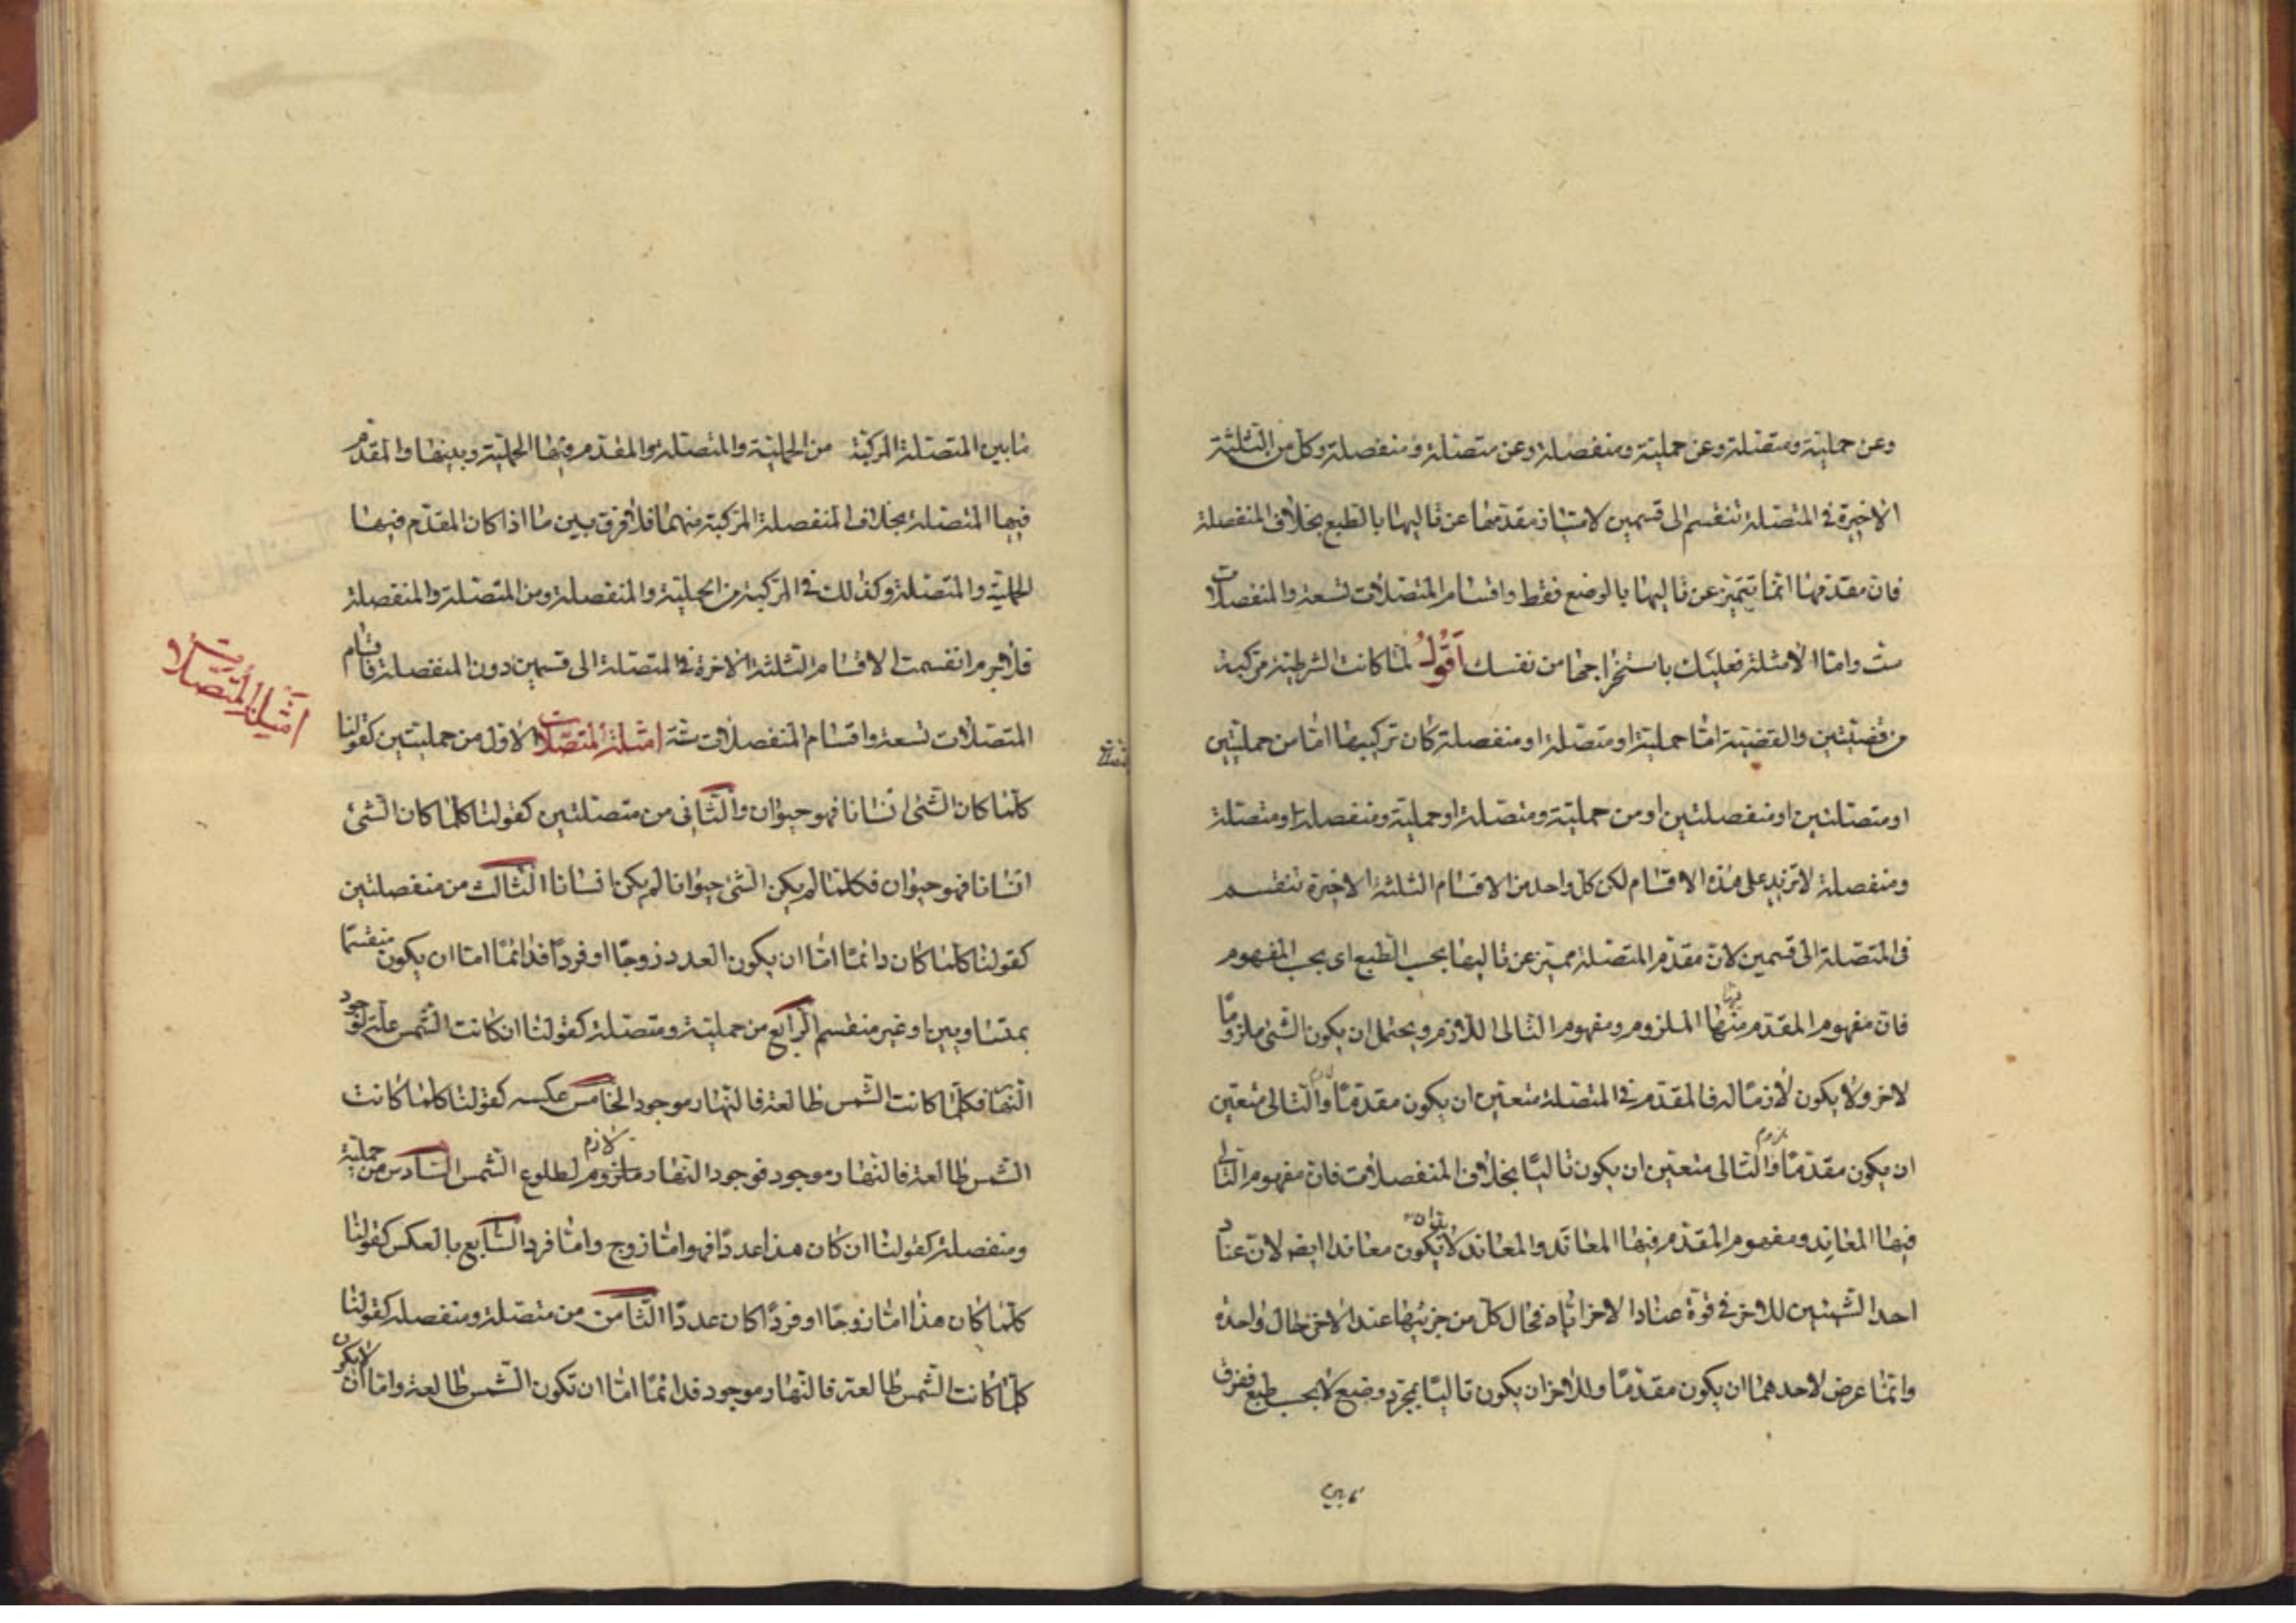 وعن حملية ومتصلة وعن حملية ومنفصلة وعن متصلة ومنفصلة وكل من الثلثة
الاخيرة فى المتصلة تنقسم الى قسمين لامتياز مقدمها عن تاليها بالطبع بخلاف المنفصلة
فان مقدمها انما تتميز عن تاليها بالوضع فقط واقسام المتصلات تسعة والمنفصلات
ست واما الامثلة فعليك باستخراجها من نفسك اقول لما كانت الشرطية مركبة
من قضيتين والقضية اما حملية او متصلة او منفصلة كان تركيبها اما من حمليتين
او متصلتين او منفصلتين او من حملية ومتصلة او حملية ومنفصلة او متصلة
ومنفصلة لا تزيد على هذه الاقسام لكن كل واحد من الاقسام الثلثة الاخيرة تنقسم
فى المتصلة الى قسمين لان مقدم المتصلة مميز عن تاليها بحسب الطبع اى بحسب المفهوم
فان مفهوم المقدم منها فيها الملزوم ومفهوم التالى اللازم ويحتمل ان يكون الشئ ملزوما
لاخر ولا يكون لازما له فالمقدم فى المتصلة متعين ان يكون مقدما والتالى متعين
ان يكون مقدما والتالى متعين ان يكون تاليا بخلاف المنفصلات فان مفهوم التالى
فيها المعاند ومفهوم المقدم فيها المعاند والمعاند لا يكون معاندا ايضا لان عناد
احد الشيئين للاخر فى قوة عناد الاخر اياه فحال كل من جزئيها عند الاخر حال واحدة
وانما عرض لاحدهما ان يكون مقدما وللاخر ان يكون تاليا بمجرد وضع لا بحسب طبع ففرق
ما بين
ما بين المتصلة المركبة من الحملية والمتصلة والمقدم فيها الحملية وبينها والمقدم
فيها المتصلة بخلاف المنفصلة المركبة منهما فلا فرق بين ما اذا كان المقدم فيها
الحملية والمتصلة وكذلك فى المركبة من الحملية والمنفصلة ومن المتصلة والمنفصلة
فلا جرم انقسمت الاقسام الثلثة الاخرة فى المتصلة الى قسمين دون المنفصلة فاقسام
المتصلات تسعة واقسام المنفصلات ستة امثلة المتصلات الاول من حمليتين كقولنا
كلما كان الشئ انسانا فهو حيوان والثانى من متصلتين كقولنا كلما كان الشئ
انسانا فهو حيوان فكلما لم يكن الشئ حيوانا لم يكن انسانا الثالث من منفصلتين
كقولنا كلما كان دائما اما ان يكون العدد زوجا او فردا فدائما اما ان يكون منقسما
بمتساويين او غير منقسم الرابع من حملية ومتصلة كقولنا ان كانت الشمس علة لوجود
النهار فكلما كانت الشمس طالعة فالنهار موجود الخامس عكسه كقولنا كلما كانت
الشمس طالعة فالنهار موجود فوجود النهار ملزوم لازم لطلوع الشمس السادس من حملية
ومنفصلة كقولنا ان كان هذا عددا فهو اما زوج واما فرد السابع بالعكس كقولنا
كلما كان هذا اما زوجا او فردا كان عددا الثامن من متصلة ومنفصلة كقولنا
كلما كانت الشمس طالعة فالنهار موجود فدائما اما ان تكون الشمس طالعة واما ان لا يكون
امثلة المتصلات